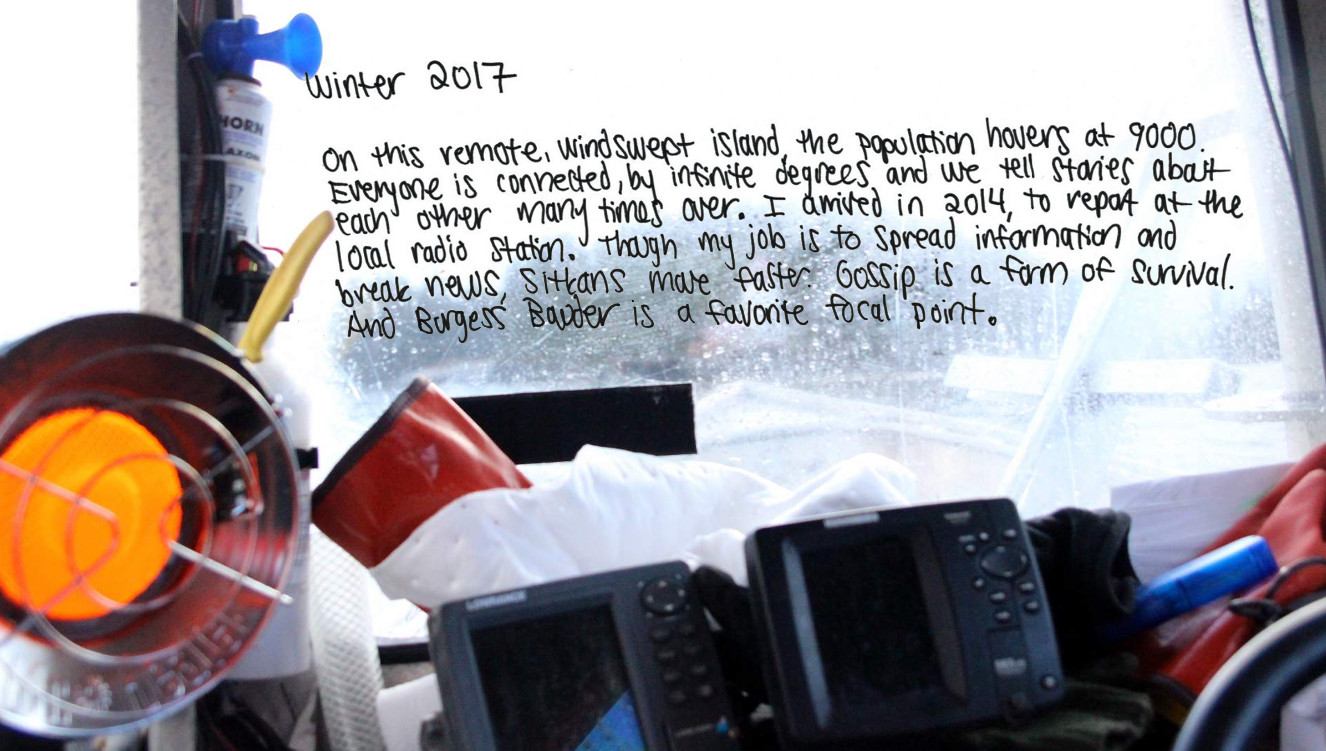 Winter 2017
On this remote, windswept island, the population hovers at 9000.
Everyone is connected, by infinite degrees and we tell stories about
each other many times over. I arrived in 2014, to report at the
local radio station. Though my job is to spread information and
break news, Sitkans move faster. Gossip is a form of survival.
And Burgess Bauder is a favorite focal point.
HORN
LOWRANCE